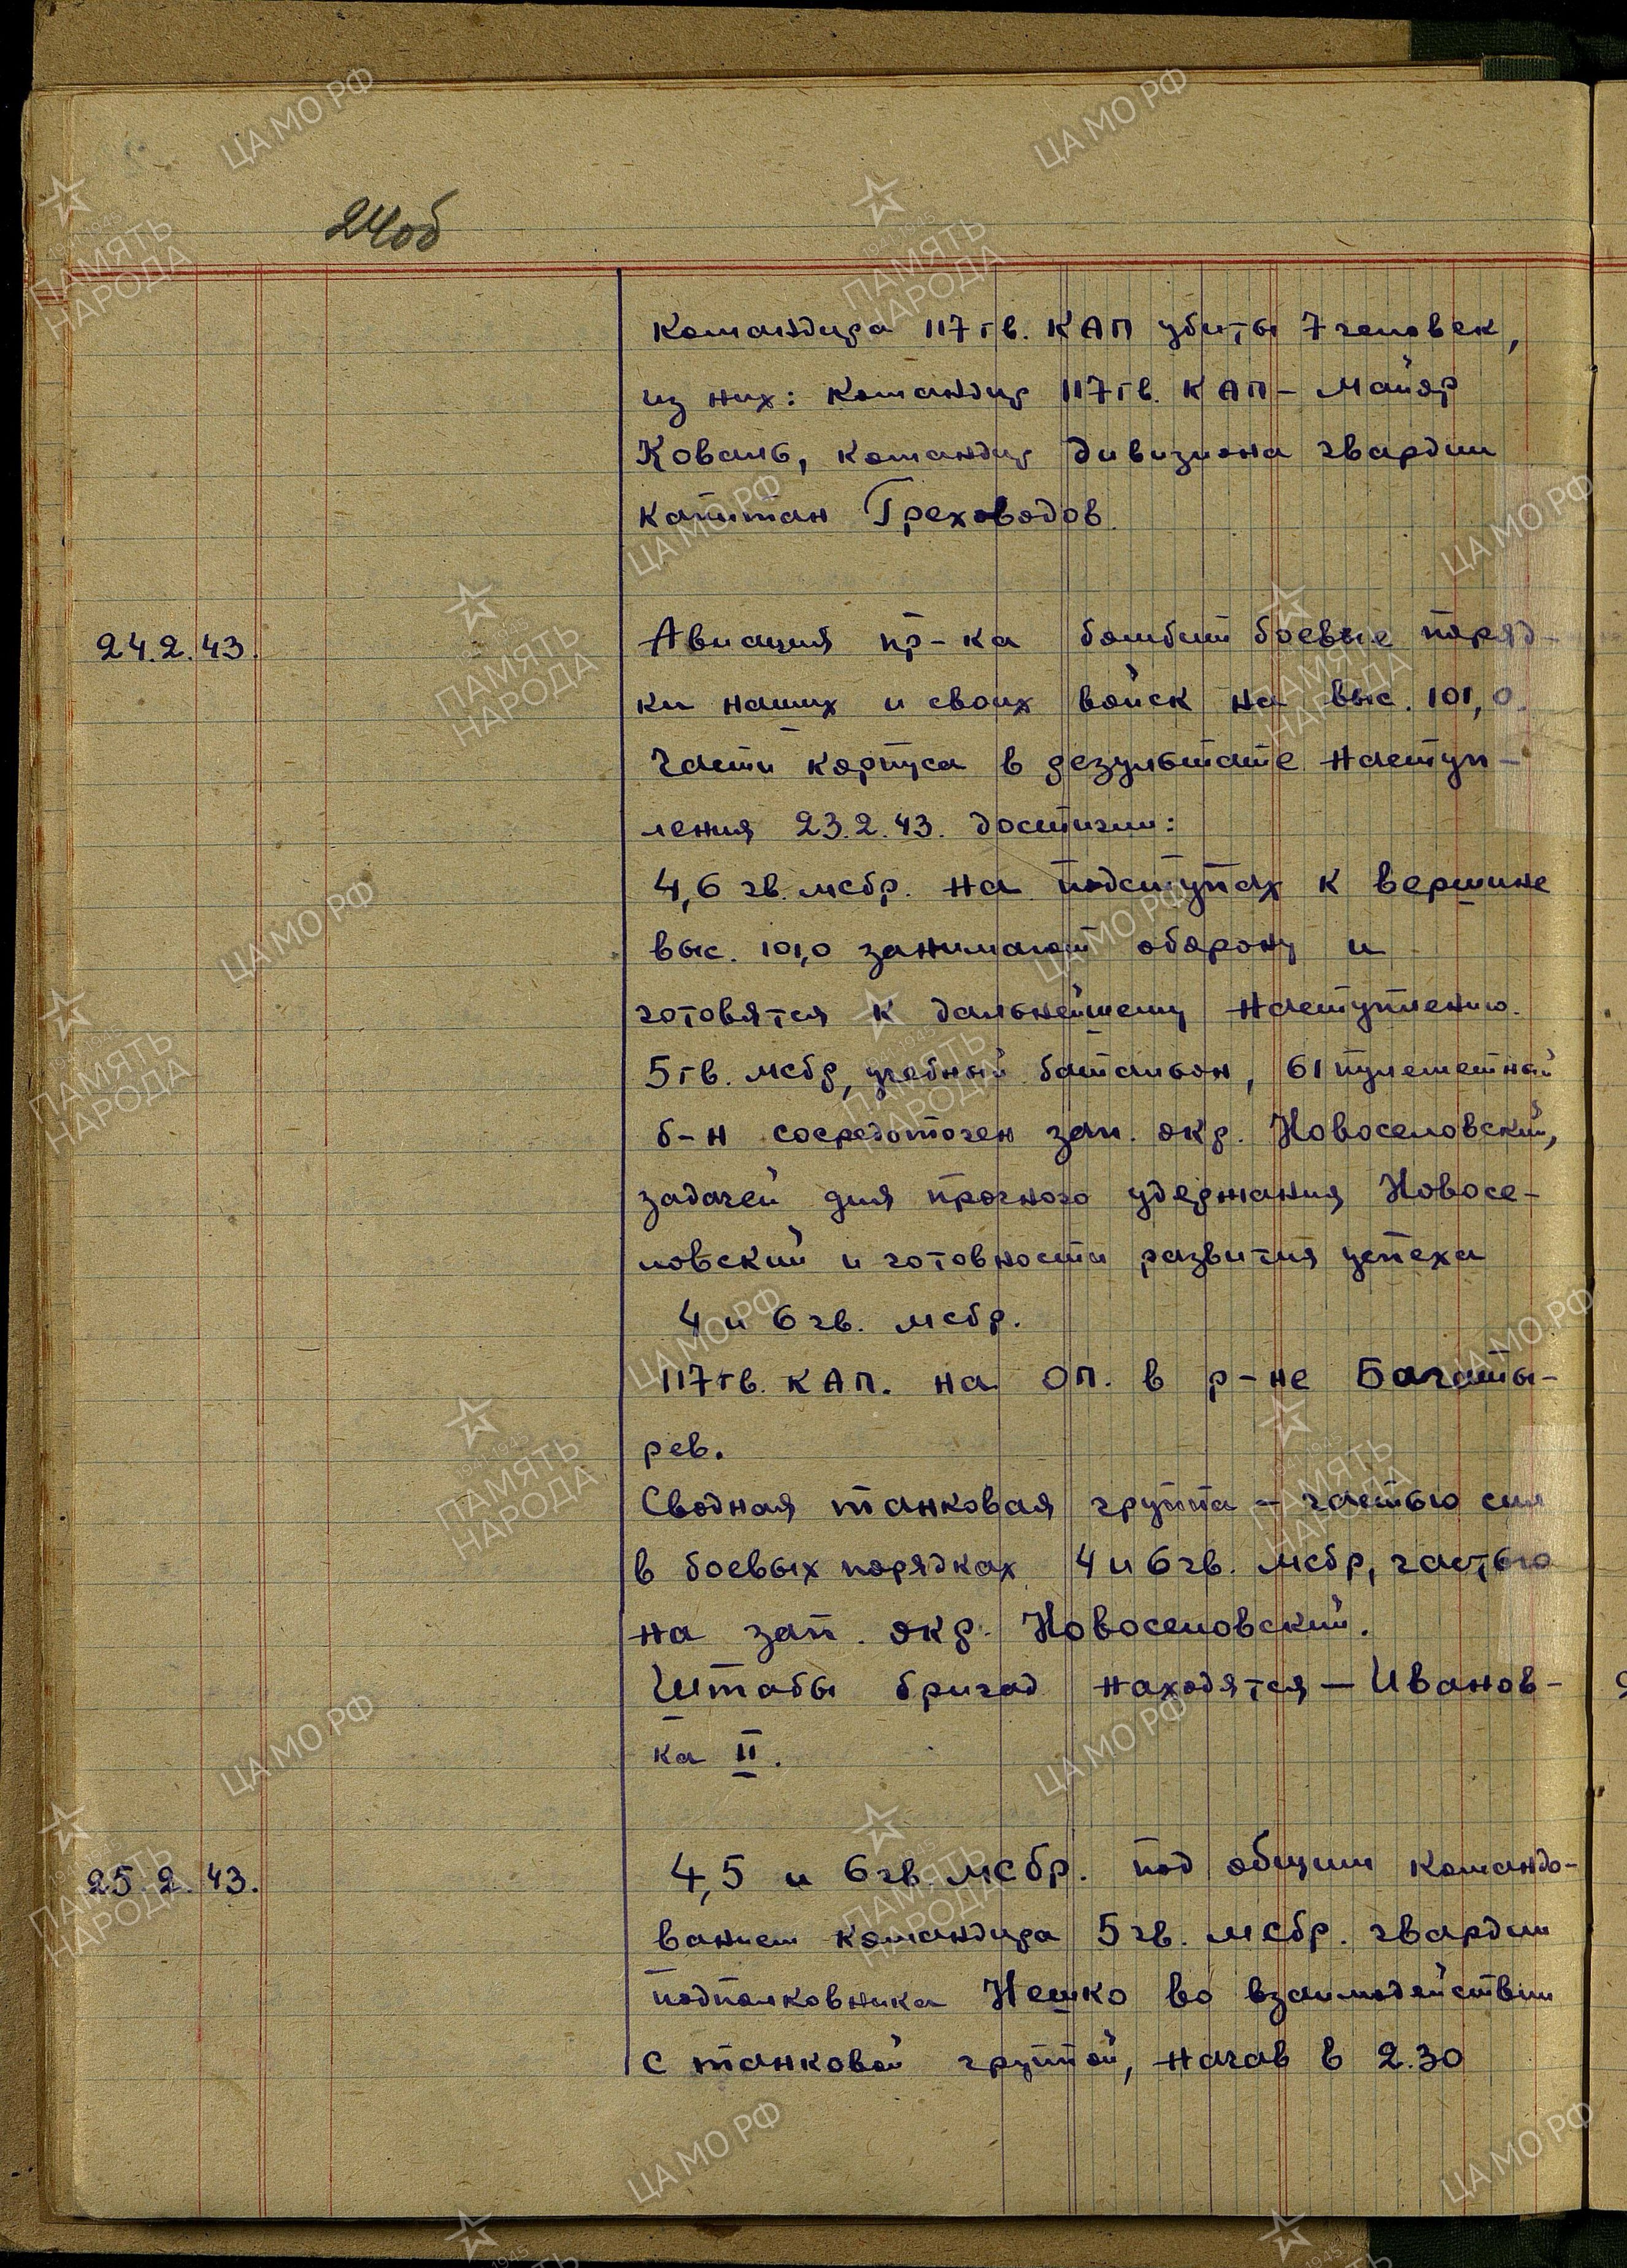 24об
командира 117 гв. КАП убиты 7 человек,
из них: командир 117 гв. КАП – майор
Коваль, командир дивизиона гвардии
капитан Греховодов.
24.2.43. Авиация пр-ка бомбит боевые поряд-
ки наших и своих войск на выс. 101,0.
Части корпуса в результате наступ-
ления 23.2.43. достигли:
4,6 гв. мсбр. на подступах к вершине
выс. 101,0 занимают оборону и
готовятся к дальнейшему наступлению.
5 гв. мсбр, учебный батальон, 61 пулеметный
б-н сосредоточен зап. окр. Новоселовский,
задачей для прочного удержания Новосе-
ловский и готовности развития успеха
4 и 6 гв. мсбр.
117 гв. КАП. на ОП. в р-не Багаты-
рев.
Сводная танковая группа – частью сил
в боевых порядках 4 и 6 гв. мсбр, частью
на зап. окр. Новоселовский.
Штабы бригад находятся – Иванов-
ка II.
25.2.43. 4,5 и 6 гв. мсбр. под общим командо-
ванием командира 5 гв. мсбр. гвардии
подполковника Нешко во взаимодействии
с танковой группой, начав в 2.30
ЦА МО РФ
1941-1945
ПАМЯТЬ
НАРОДА